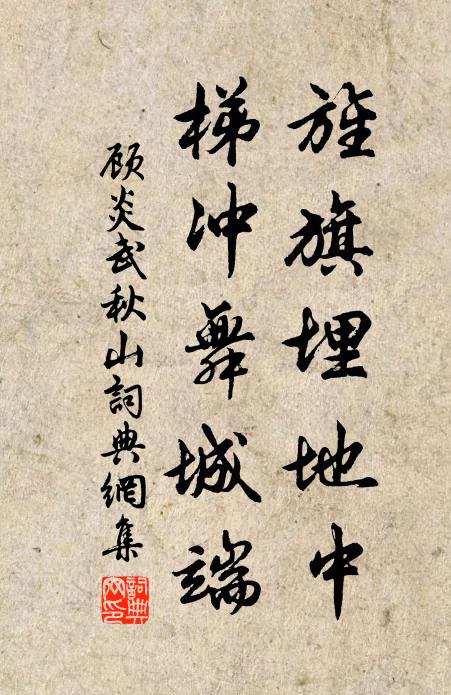 旌旗埋地中
梯冲舞城端
顾炎武秋山詞典網集
詞典